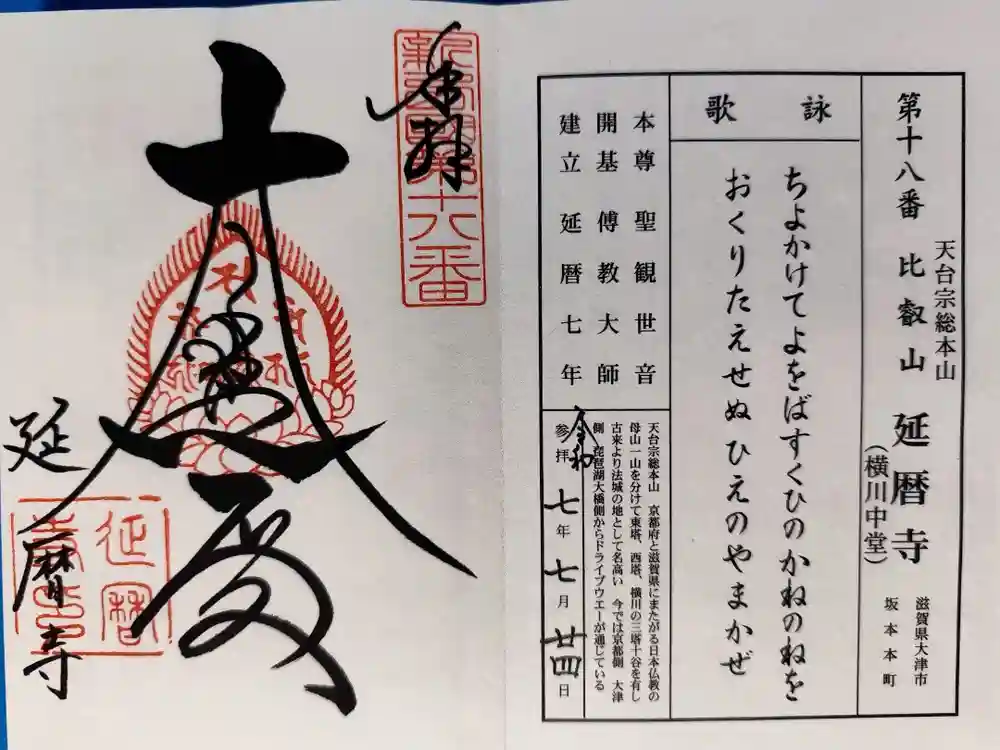 第十八番 比叡山 延暦寺
天台宗総本山
(横川中堂)
滋賀県大津市
坂本本町
詠歌
ちよかけてよをばすくひのかねのねを
おくりたえせぬひえのやまかぜ
本尊 聖観世音
開基 傳教大師
建立 延暦七年
天台宗総本山 京都府と滋賀県にまたがる日本仏教の
母山一山を分けて東塔、西塔、横川の三塔十谷を有し
古来より法城の地として名高い 今では京都側 大津
側 琵琶湖大橋側からドライブウエーが通じている
令和
参拝 七年 七月 廿四日
奉拝
大悲殿
延暦寺
延暦